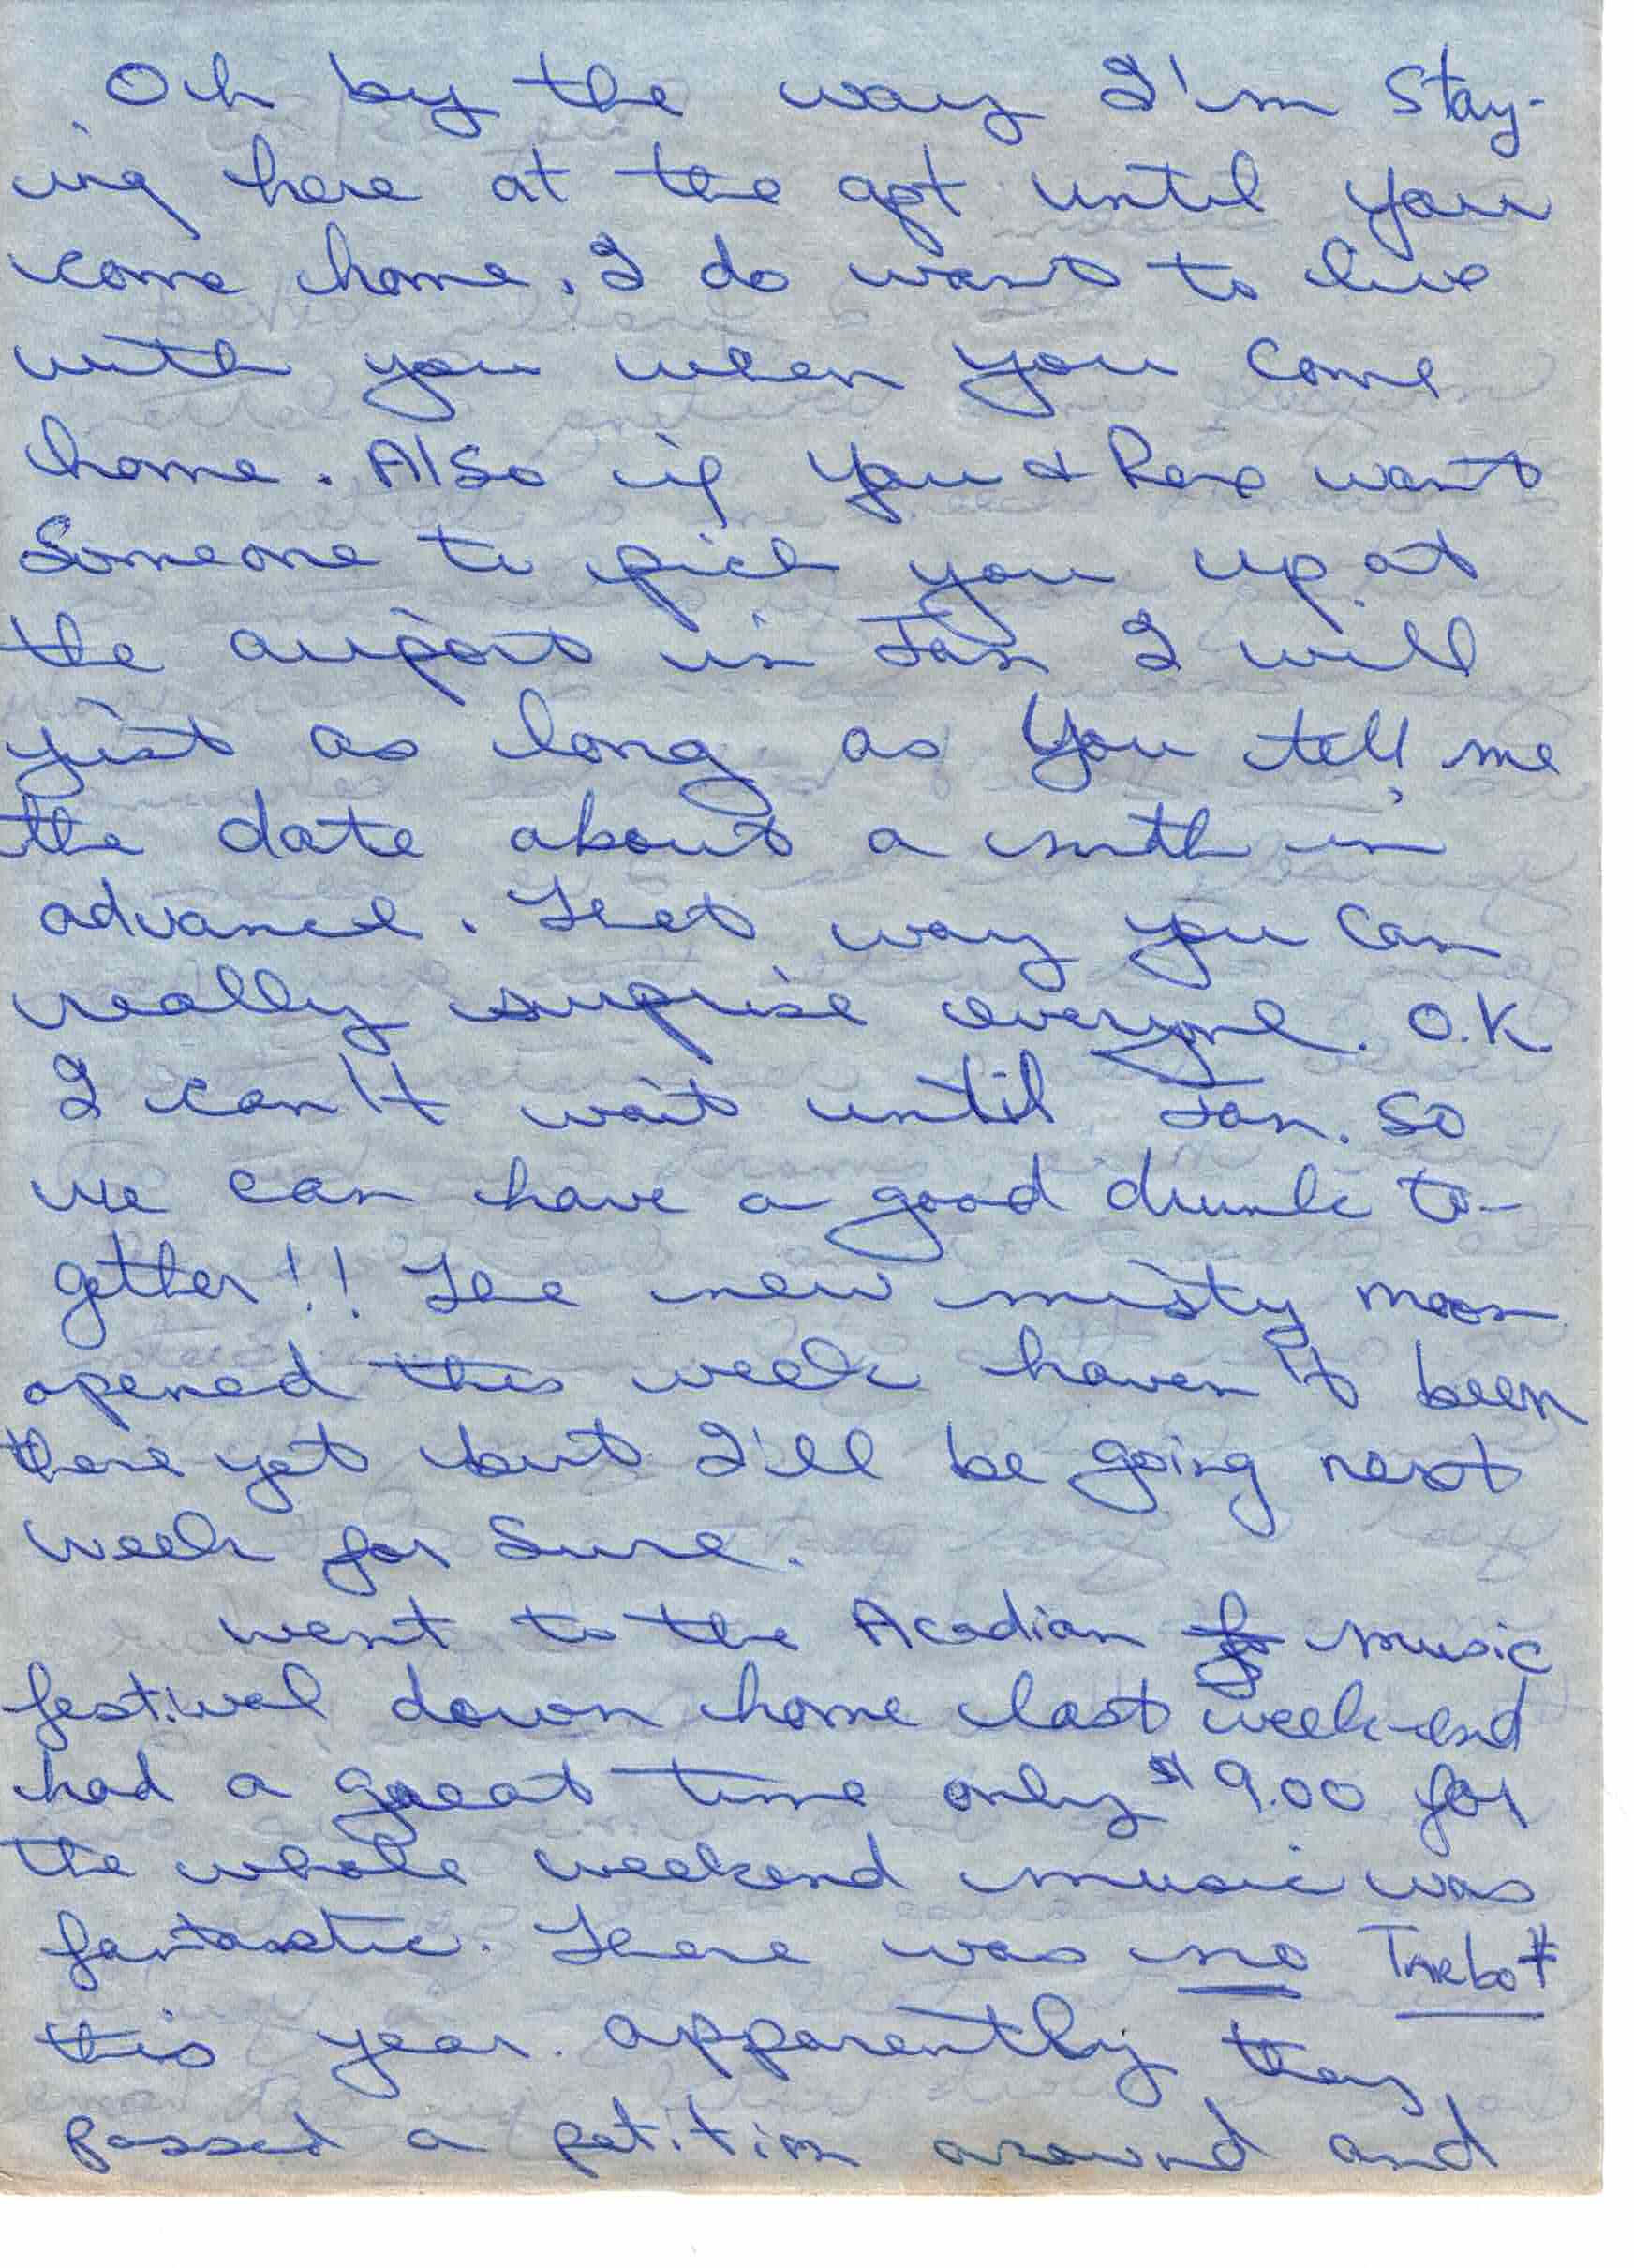 Oh by the way I'm stay-
ing here at the apt until you
come home. I do want to live
with you when you come
home. Also if you & want
Someone to pick you up at
the airport in Jan I will
just as long as you tell me
the date about a month in
advance. That way you can
really surprise everyone. O.K.
I can't wait until Jan. so
we can have a good drunk to-
gether!! The new misty moon
opened this week haven't been
there yet but I'll be going next
week for sure.
went to the Acadian music
festival down home last week-end
had a great time only $9.00 for
the whole weekend music was
fantastic. There was no Tarbot
this year. apparently they
passed a petition around and